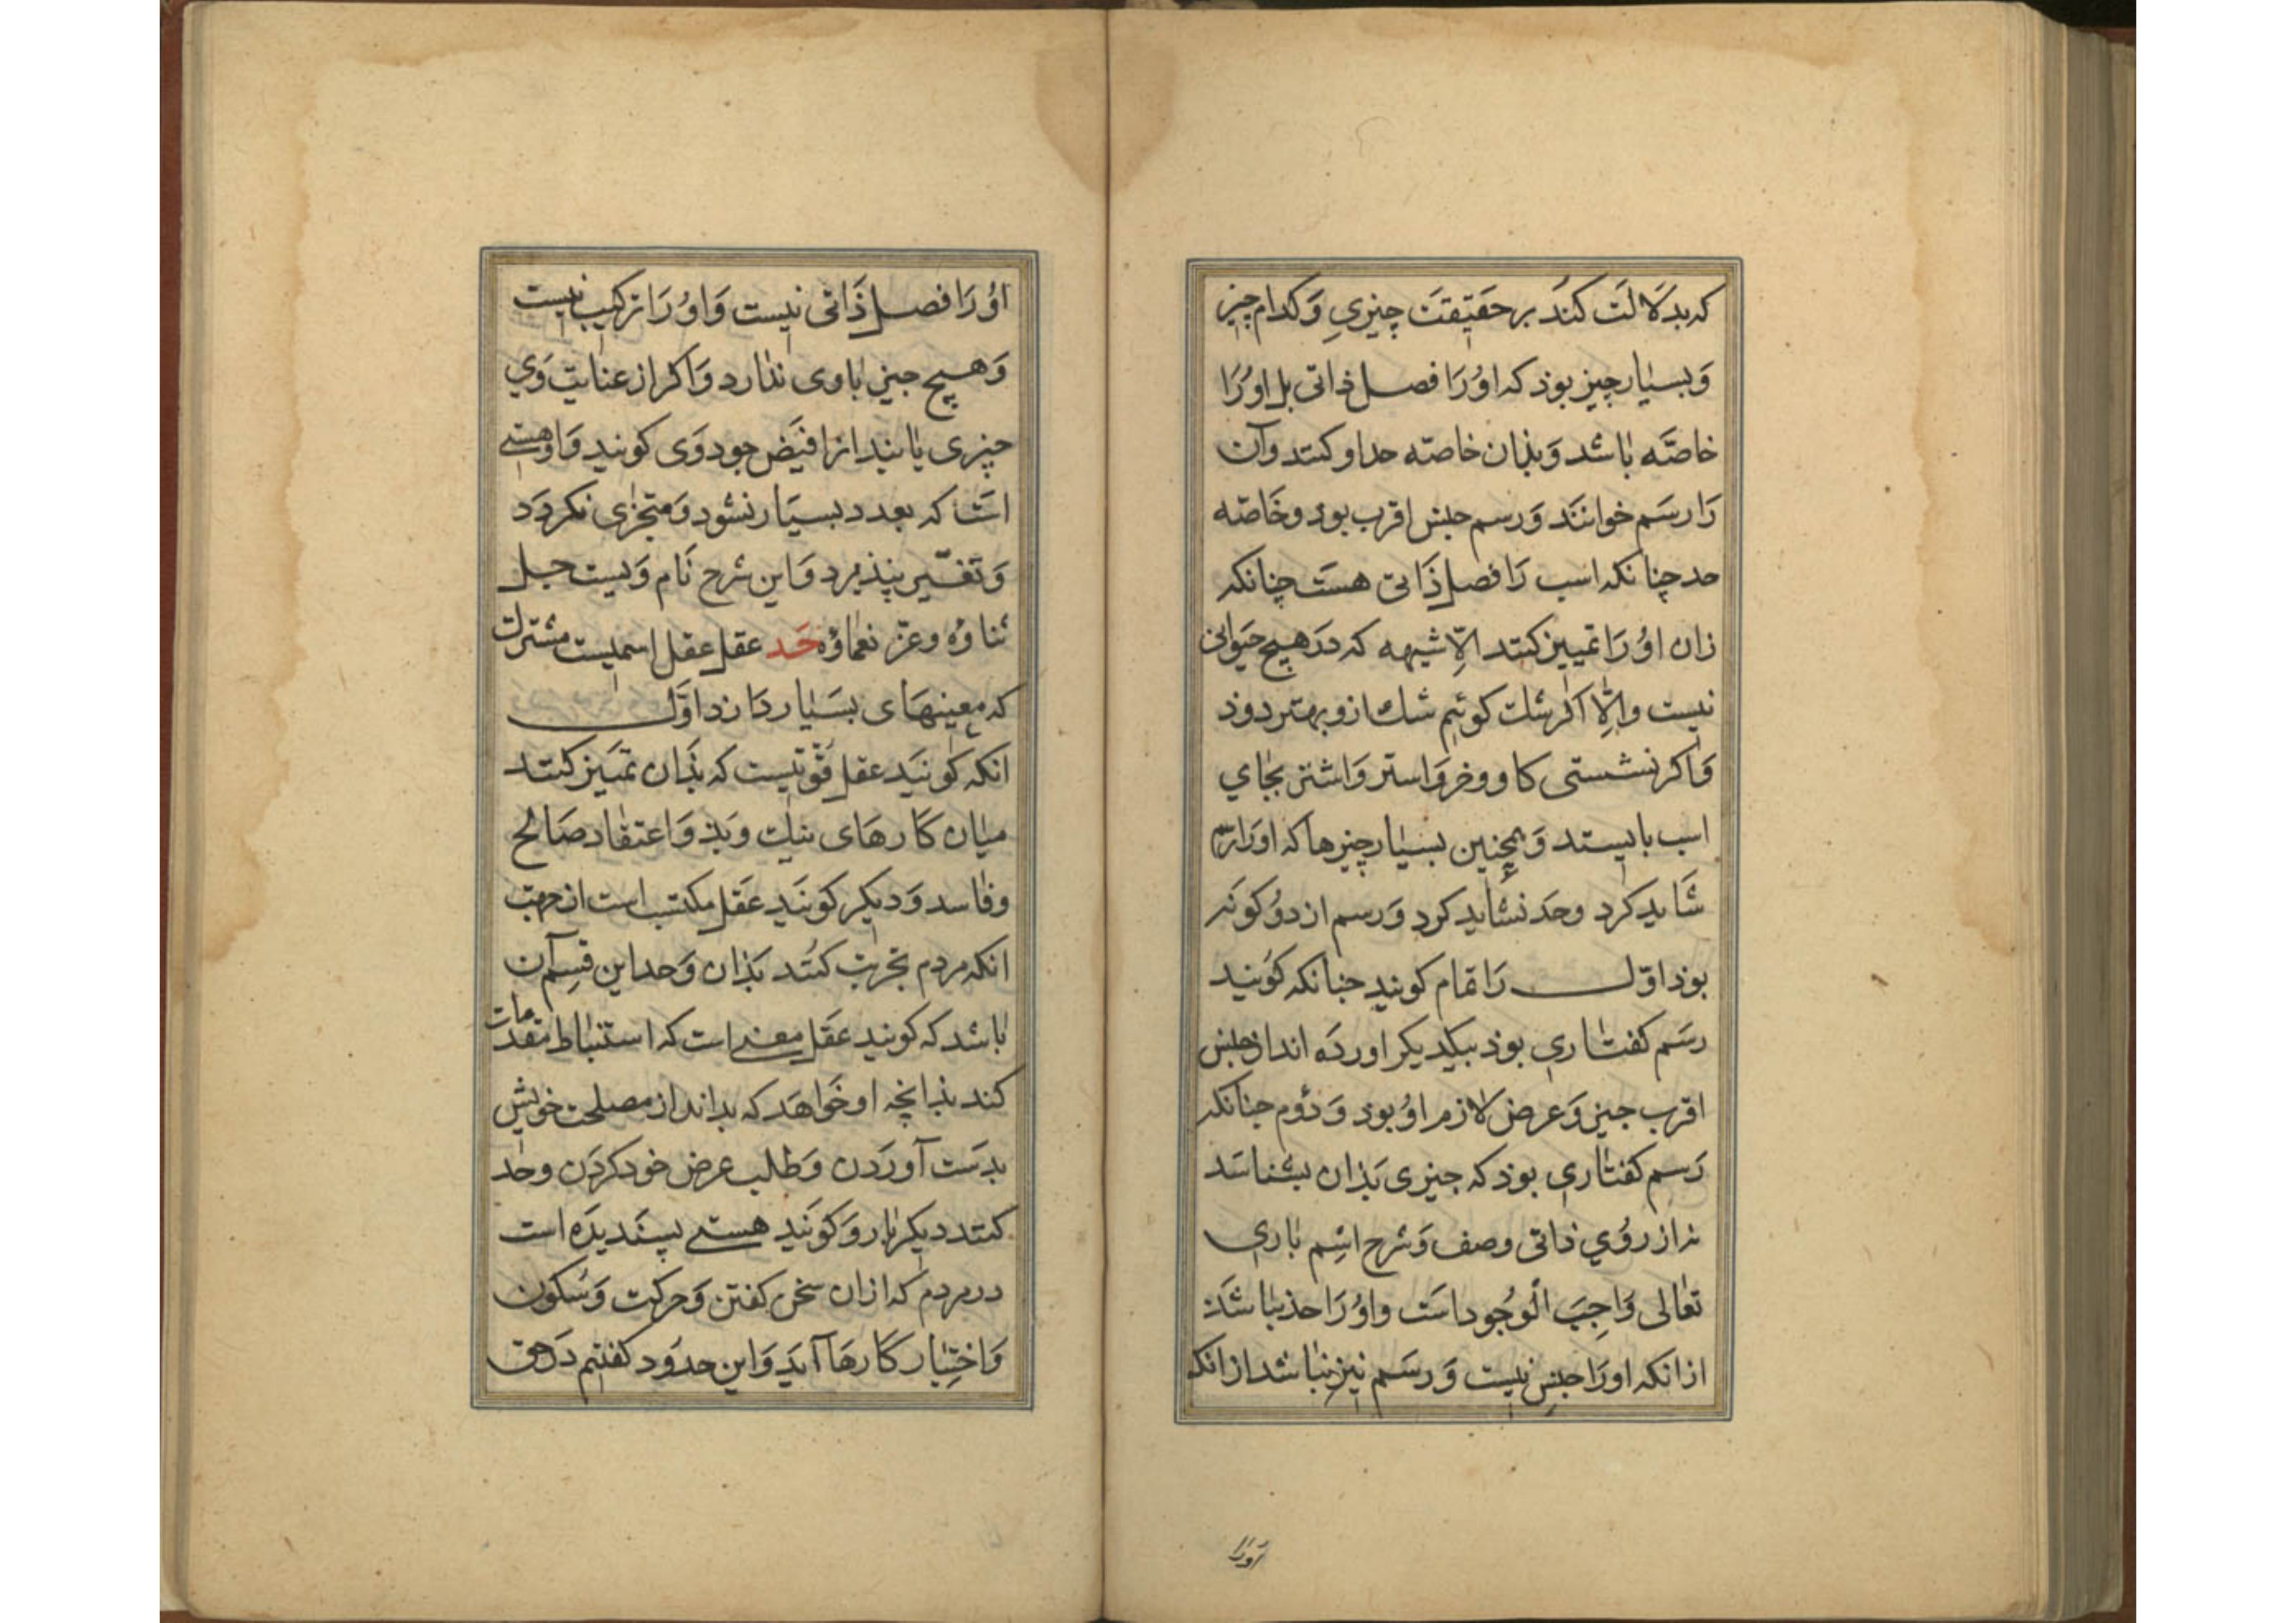 که بدلالت کند بر حقیقت چیزی و کدام چیز
و بسیار چیز بوذ که او را فصل ذاتی بل او را
خاصّه باشد و بذان خاصّه حد او کنند و آن
را رسم خوانند و رسم جنس اقرب بوذ و خاصّه
حد چنانکه اسب را فصل ذاتی هست چنانکه
زان او را تمییز کنند الّا شیهه که در هیچ حیوانی
نیست و الّا اکر شک کوئیم شک ازو بهتر دوذ
و اکر نشستی کاو و خر و استر و اشتر بجای
اسب بایستد و همچنین بسیار چیزها که او را رسم
شاید کرد و حد نشاید کرد و رسم از دو کونه
بوذ اوّل را تمام کویند جنانکه کویند
رسم کفتاری بوذ بیکدیکر اورده اند از جنس
اقرب جیز و عرض لازم او بوذ و دوم جنانکه
رسم کفتاری بوذ که جیزی بذان بشناسد
نه از روی ذاتی وصف و شرح اسم باری
تعالی واجب الوجود است و او را حذ نباشد
از انکه او را جنس نیست و رسم نیز نباشد از انکه
او را
او را فصل ذاتی نیست و او را ترکیب نیست
و هیچ جیز با وی ندارد و اکر از عنایت وی
چیزی یابند انرا فیض جود وی کویند و او هستی
است که بعدد بسیار نشود و متجزی نکردد
و تغییر نپذیرد و این شرح نام ویست جل
ثناؤه و عز نعماؤه حد عقل عقل اسمیست مشترک
که معینهای بسیار دارد اوّل
انکه کویند عقل قوّتیست که بذان تمییز کنند
میان کارهای نیک و بذ و اعتقاد صالح
و فاسد و دیکر کویند عقل مکتسب است از جهت
انکه مردم تجربت کنند بذان و حد این قسم آن
باشد که کویند عقل معنی است که استنباط مقدمات
کند بذانچه او خواهد که بداند از مصلحت خویش
بدست آوردن و طلب عرض خود کردن و حد
کنند دیکر بار و کویند هستی پسندیده است
در مردم که از ان سخن کفتن و حرکت و سکون
و اختیار کارها آید و این حدود کفتیم در حق